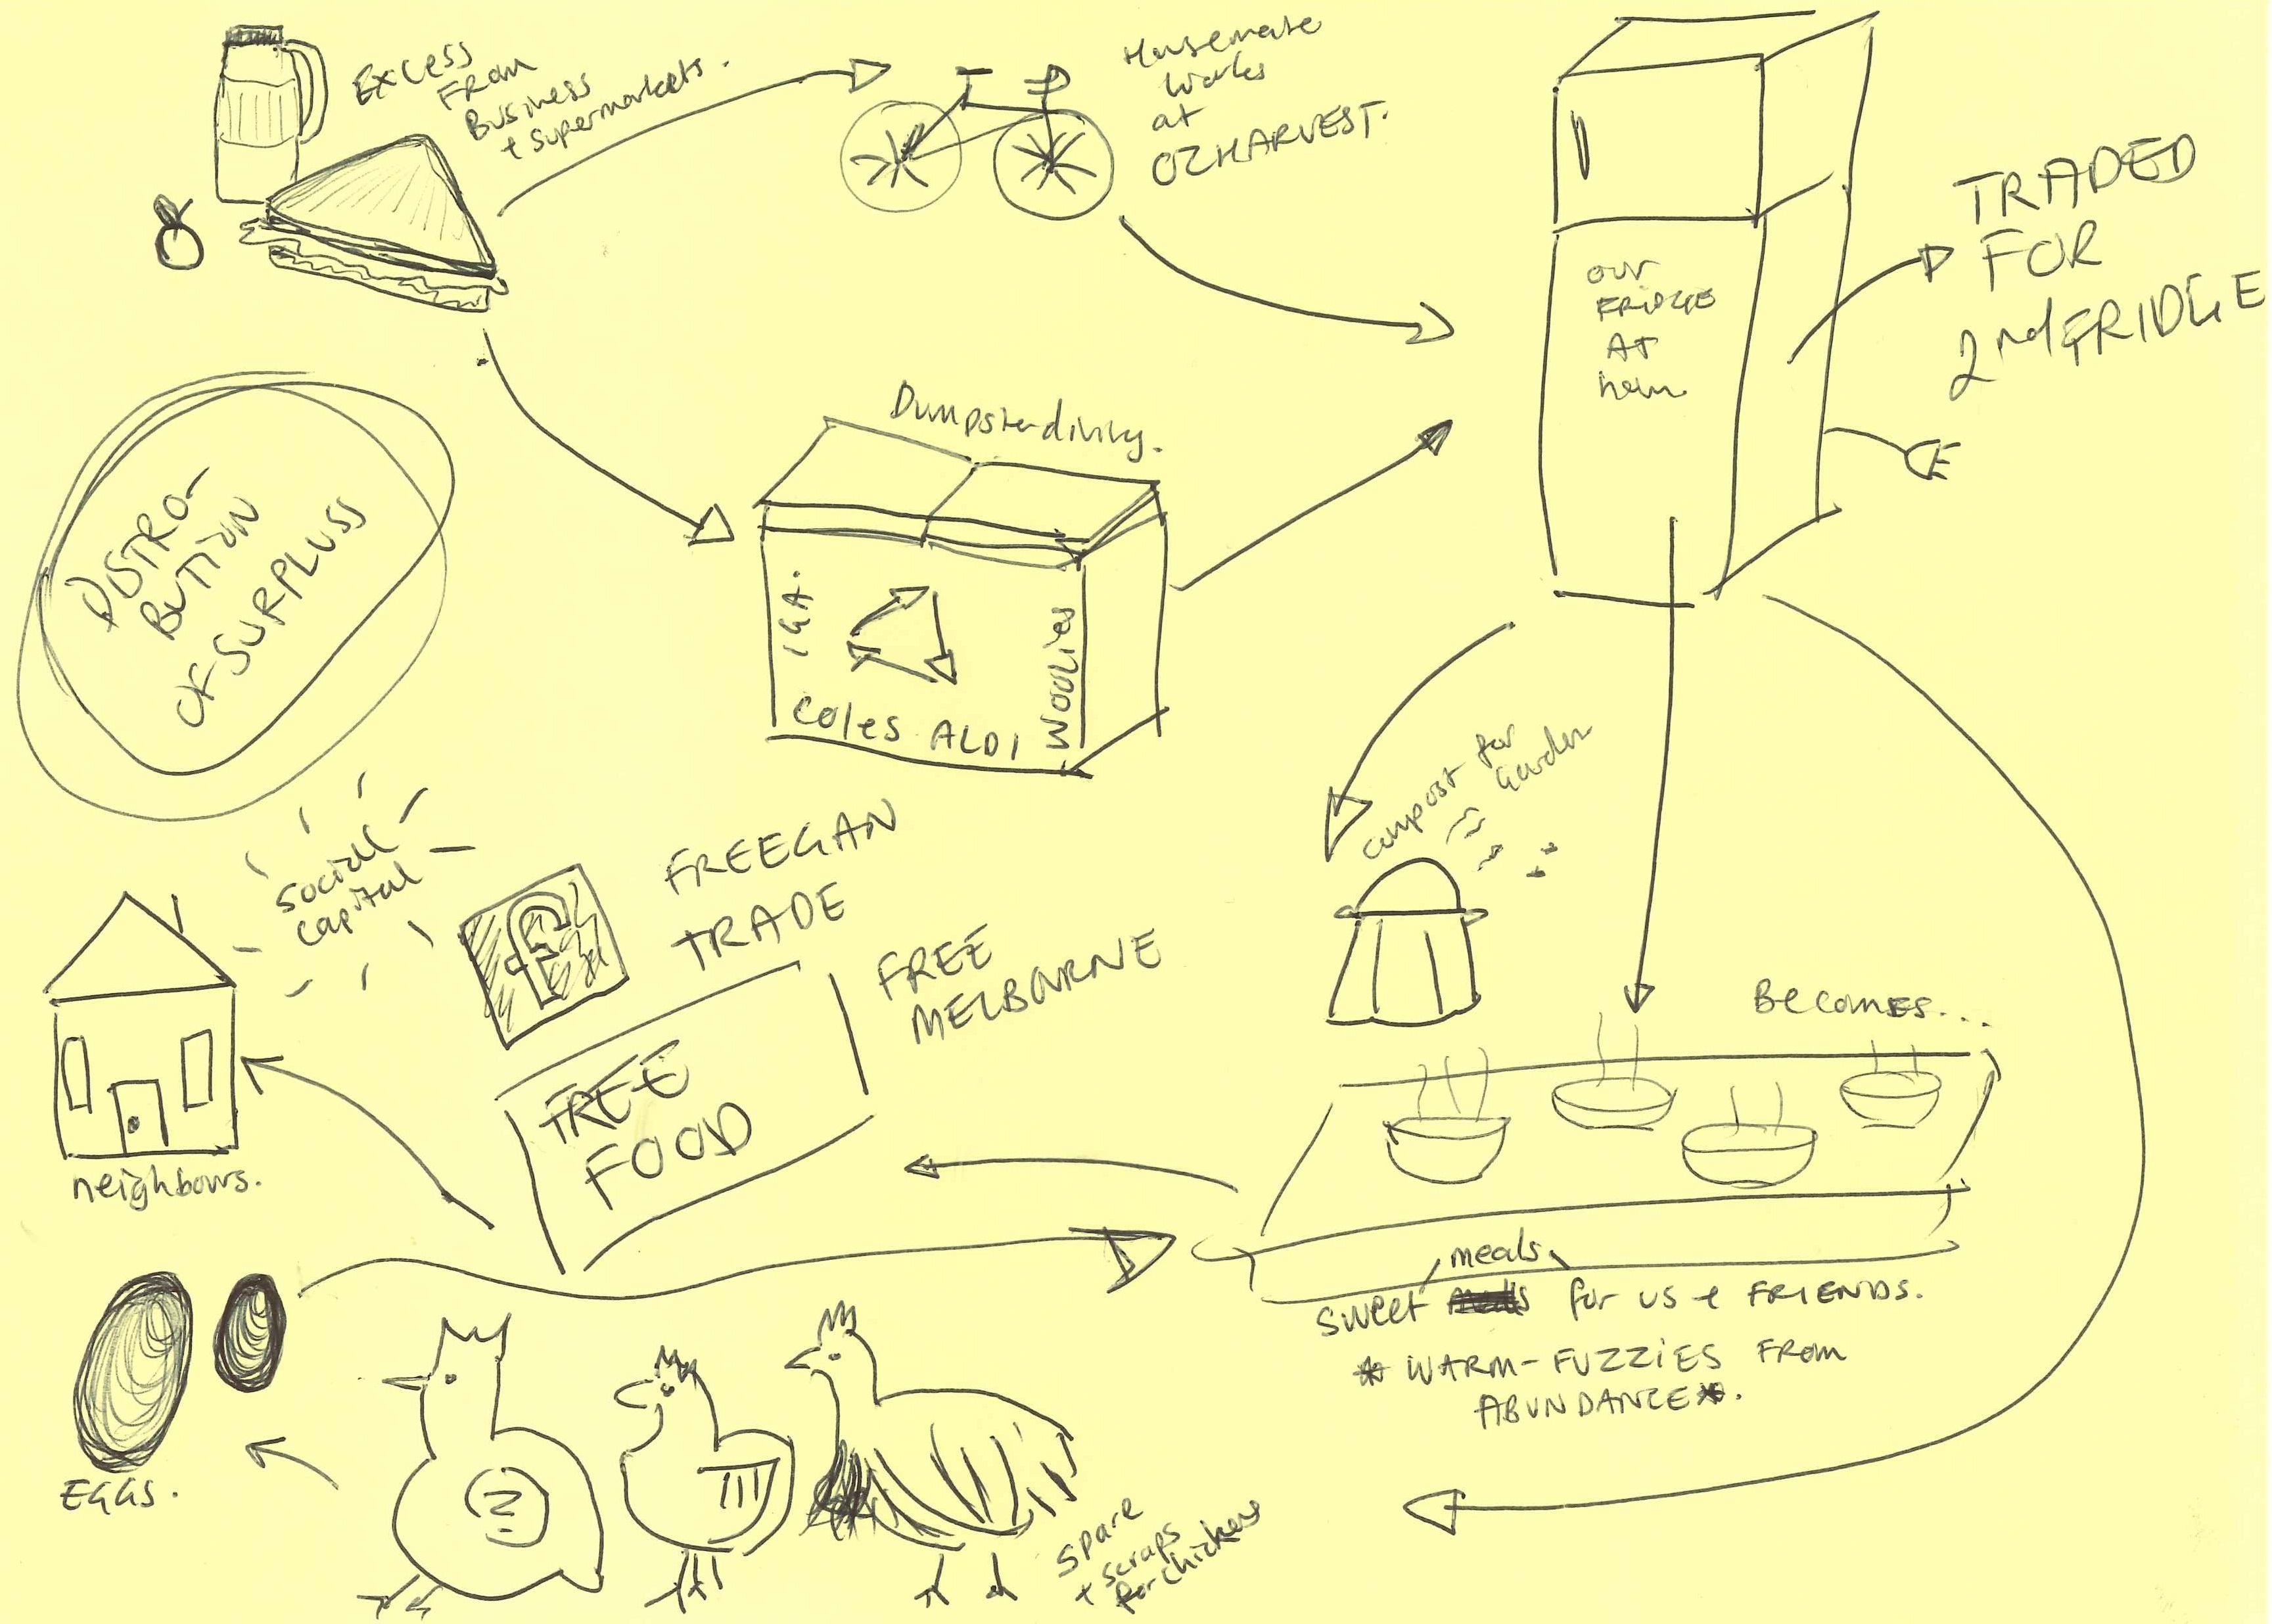 EXCESS
FROM
BUSINESS
+ supermarkets.
Housemate
works
at
OZHARVEST.
our
FRIDGE
AT
hom
TRADED
FOR
2nd FRIDGE
Dumpsterdiving.
IGA.
Coles ALDI
Woolies
DISTRO-
BUTION
OF SURPLUSS
compost for
Garden
social
capital
FREEGAN
TRADE
FREE
MELBOURNE
f
FREE
FOOD
neighbours.
Becomes...
meals
sweet for us + FRIENDS.
* WARM-FUZZIES FROM
ABUNDANCE*.
EGGS.
spare
+ scraps
for chickens